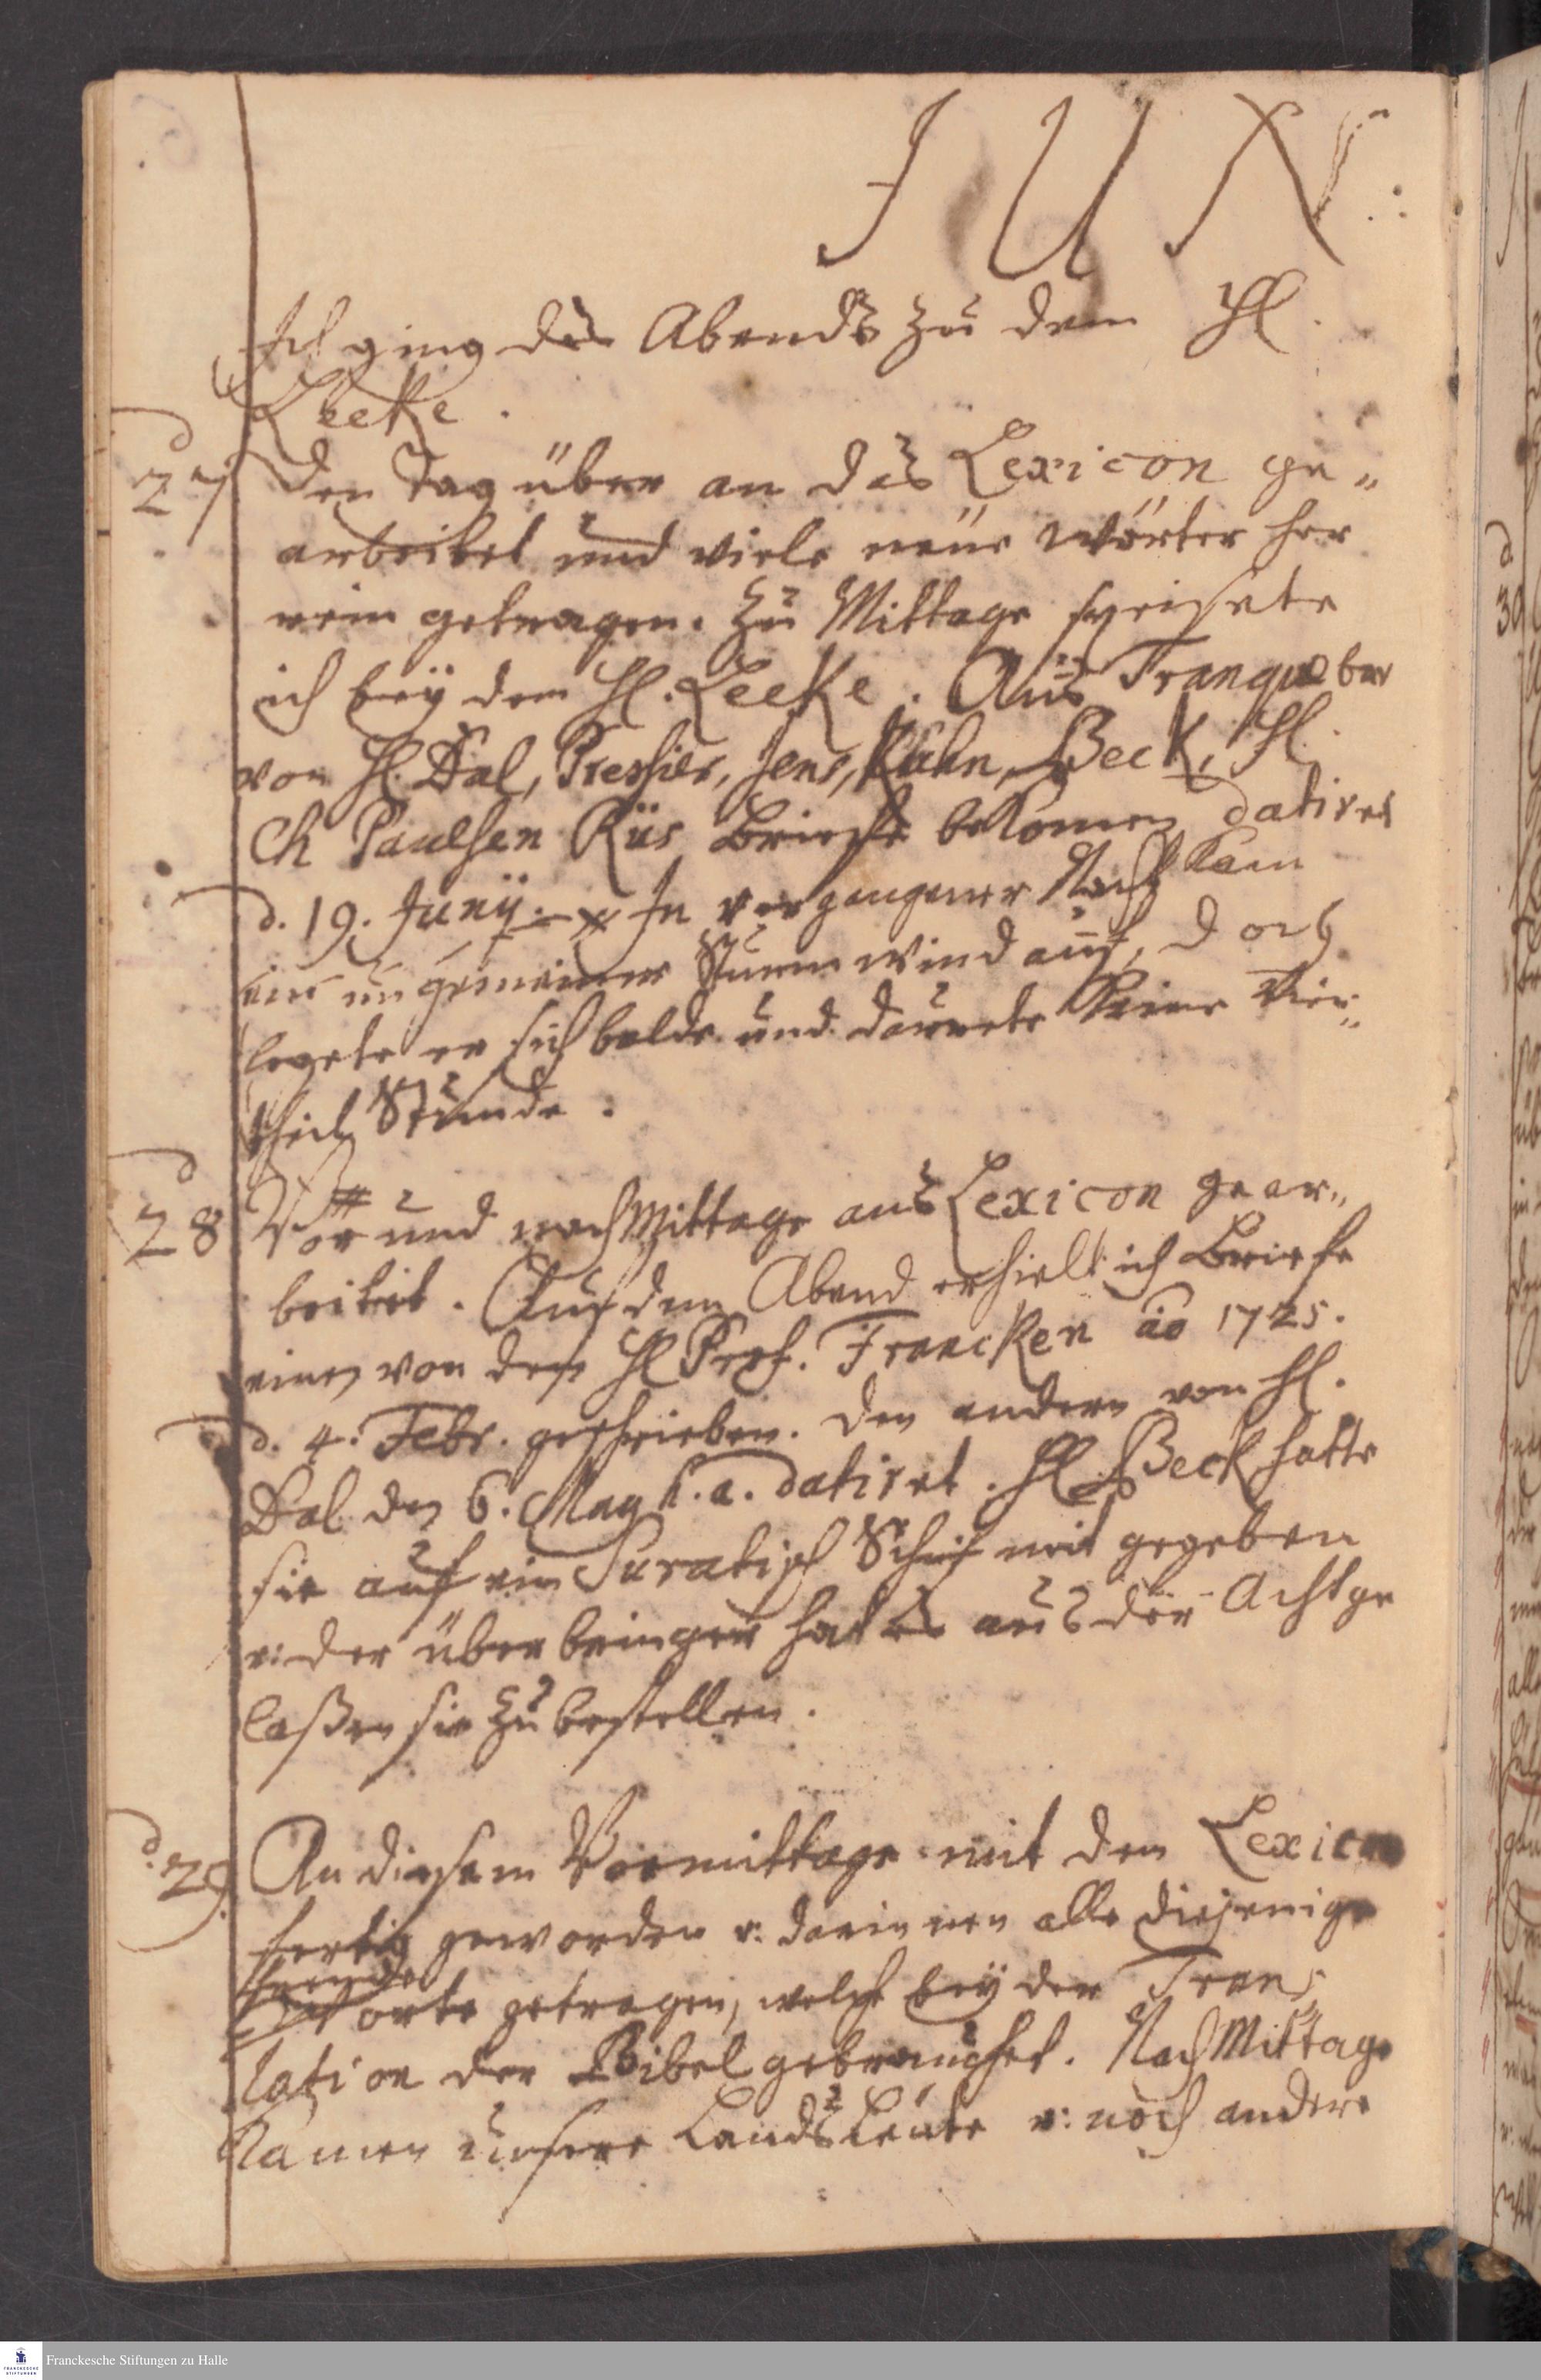 JUN:
Ich ging des Abends zu dem H.
Leeke.
d 27 den Tag über an das Lexicon ge„
arbeitet und viele neue Wörter her
rein getragen. Zu Mittage speisete
ich bey dem H. Leeke. Aus Tranquebar
von H. Dal, Pressier, Jens, Kuhn, Beck, H.
Ch Paulsen Rüs Briefe bekomen datiret
d. 19. Junij. In vergangener Nacht kam
ein ungemeiner Sturmwind auf, doch
legete er sich balde und daurete keine Vier„
theil Stunde.
d 28 Vor und nach Mittage ans Lexicon gear„
beitet. Auf dem Abend erhielt ich Briefe
einen von dem H Prof. Francken ao 1725.
d. 4. Febr. geschrieben. Den andern von H.
Dal den 6. May h. a. datiret. H. Beck hatte
sie auf ein Suratisch Schif mit gegeben
u: der überbringer hat es aus der Acht ge
laßen sie zu bestellen.
d. 29. An diesem Vormittage mit dem Lexicon
fertig geworden u: darinnen alle diejenige
Worte getragen, welche bey der Trans
lation der Bibel gebrauchet. Nach Mittage
kamen unsere Landsleute u: noch andere
Franckesche Stiftungen zu Halle
FRANCKESCHE
STIFTUNGEN